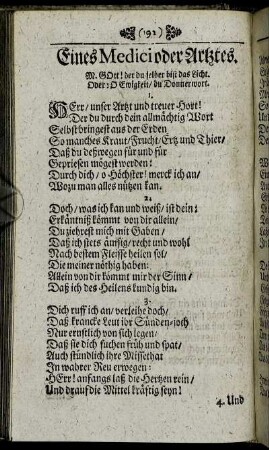 (192)
Eines Medici oder Artztes.
M. GOtt! der du selber bist das Licht.
Oder: O Ewigkeit/ du Donnerwort.
1.
HErr/ unser Artzt und treuer Hort!
Der du durch dein allmächtig Wort
Selbst bringest aus der Erden
So manches Kraut/ Frucht/ Ertz und Thier/
Daß du deßwegen für und für
Gepriesen mögest werden:
Durch dich/ o Höchster! merck ich an/
Wozu man alles nützen kan.
2.
Doch/ was ich kan und weiß/ ist dein!
Erkäntniß kömmt von dir allein/
Du ziehrest mich mit Gaben/
Daß ich stets ämsig/ recht und wohl
Nach bestem Fleisse heilen sol/
Die meiner nöthig haben:
Allein von dir kömmt mir der Sinn/
Daß ich des Heilens kundig bin.
3.
Dich ruff ich an/ verleihe doch/
Daß krancke Leut ihr Sünden-joch
Nur ernstlich von sich legen/
Daß sie dich suchen früh und spat/
Auch stündlich ihre Missethat
In wahrer Reu erwegen:
HErr! anfangs laß die Hertzen rein/
Und drauf die Mittel kräftig seyn!
4. Und